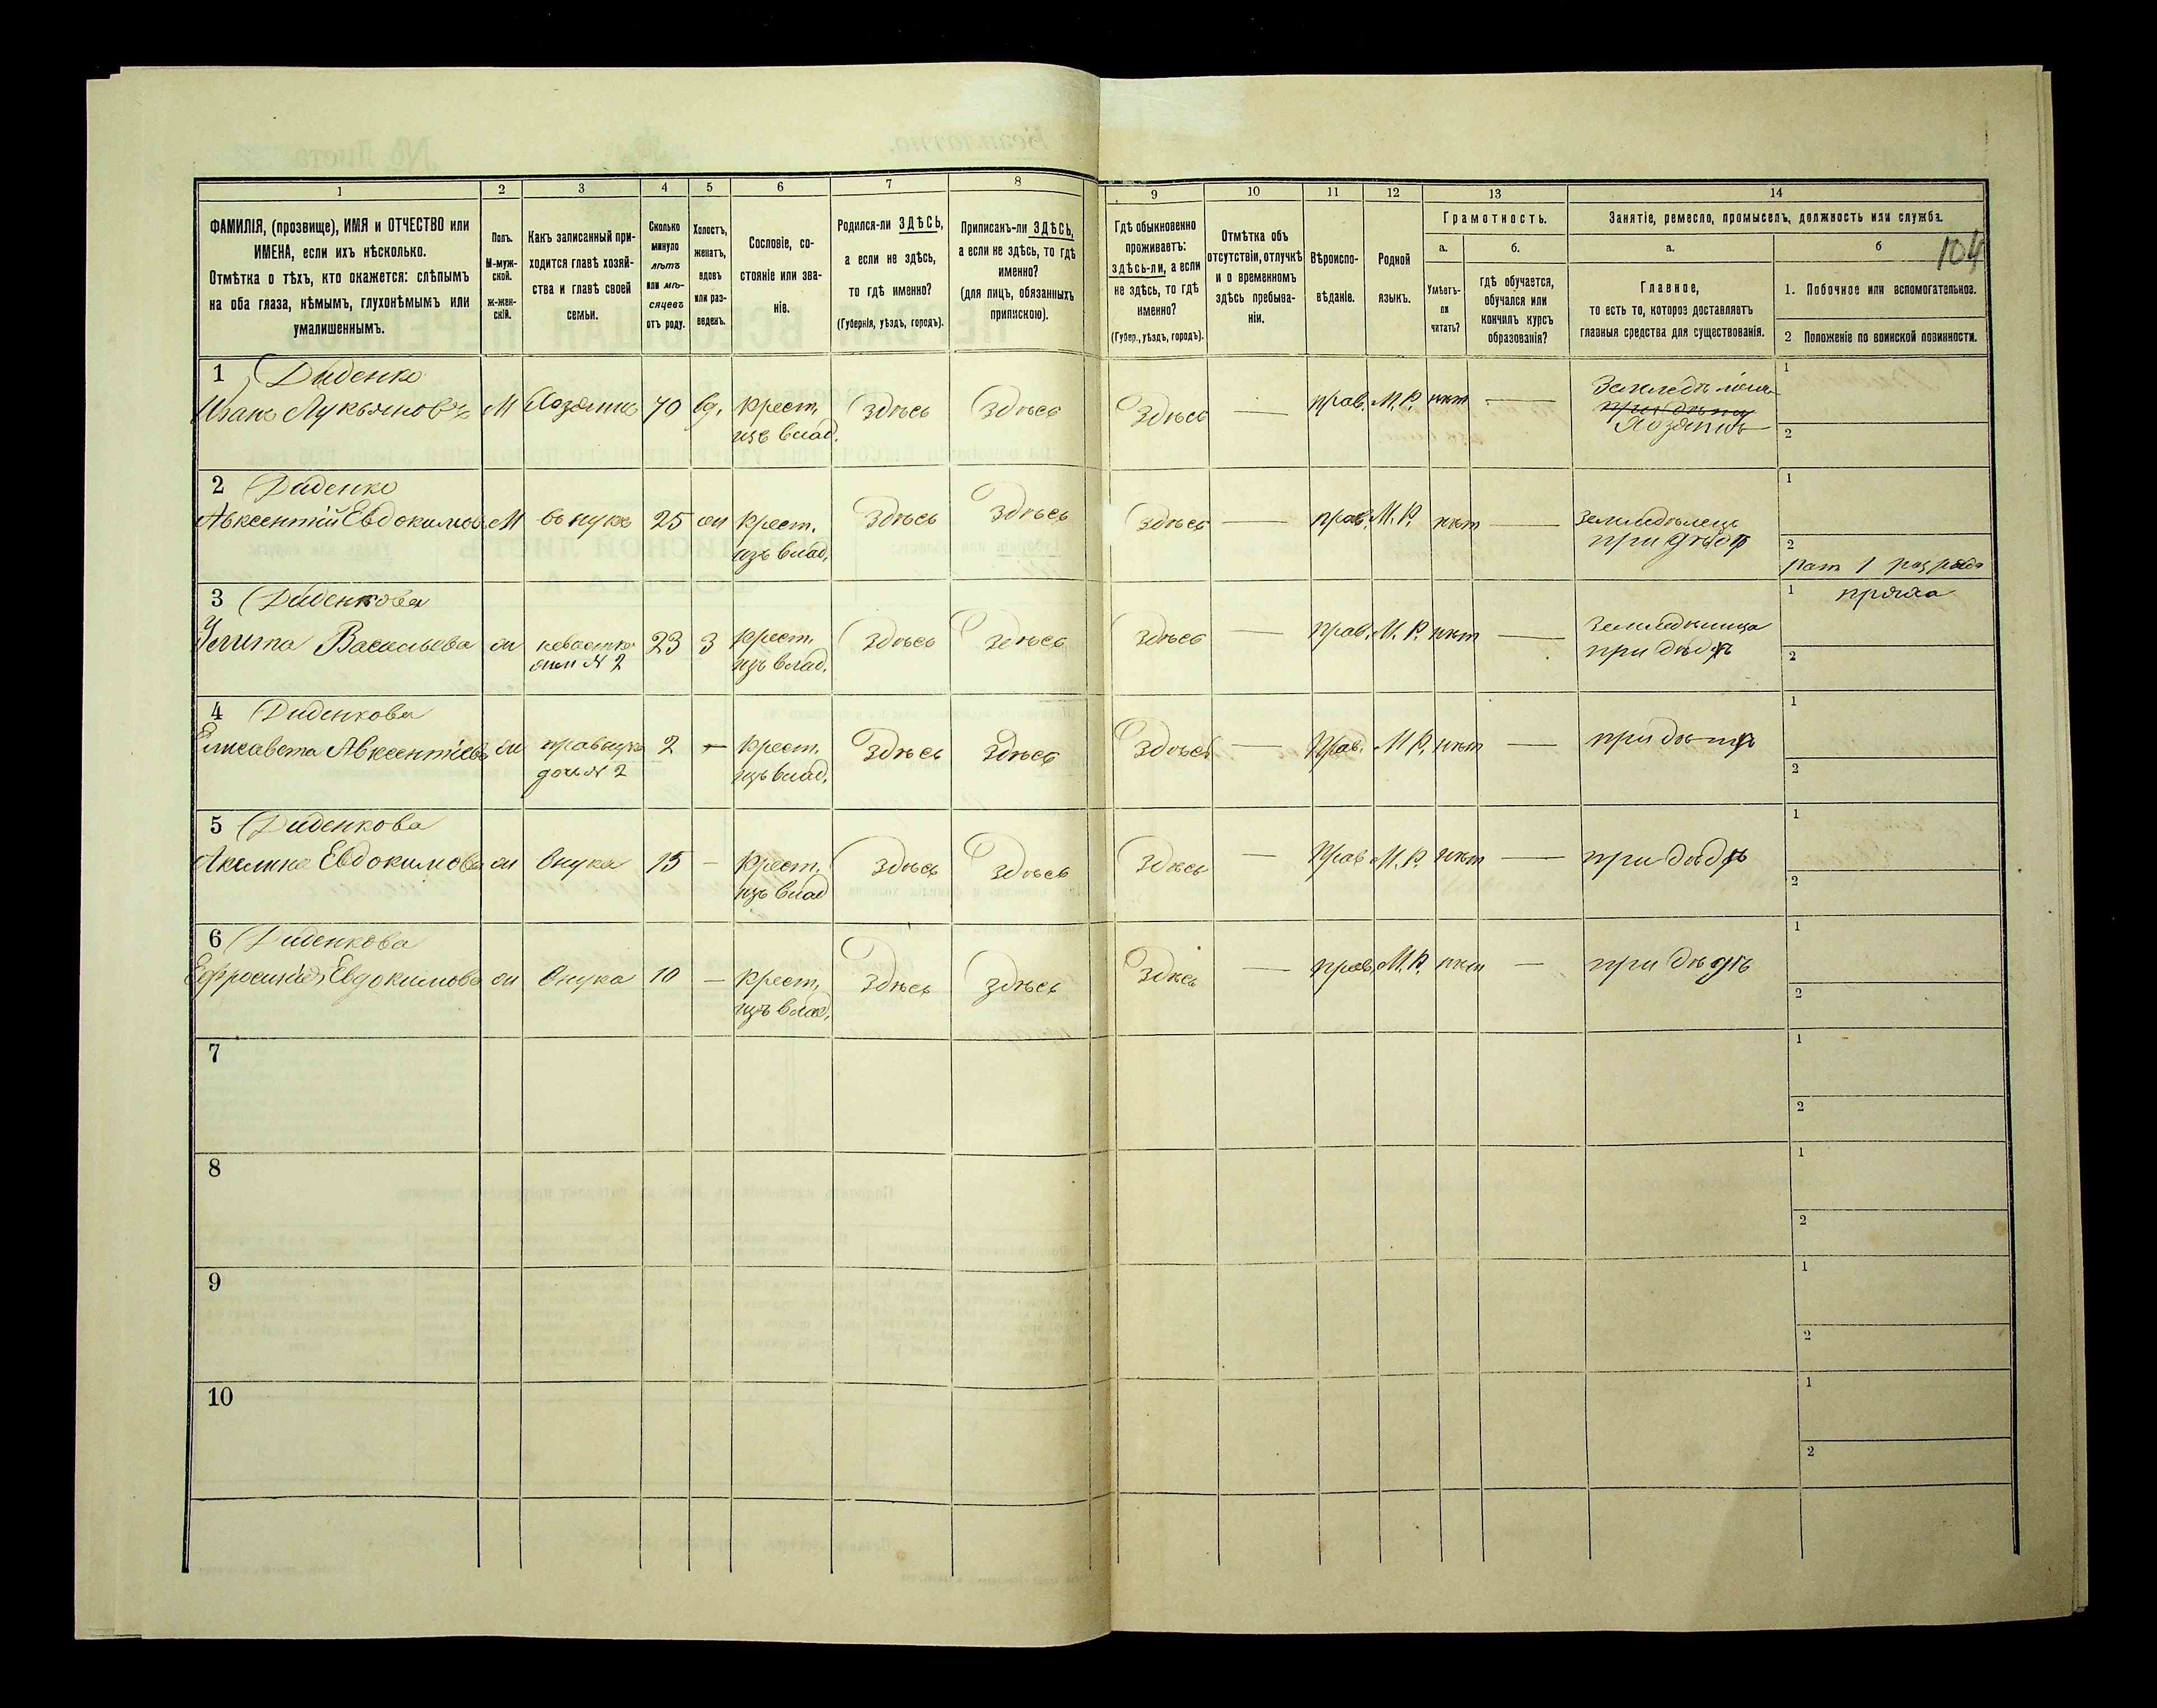 1 2 3 4 5 6 7 8 9 10 11 12 13 14
ФАМИЛІЯ, (прозвище), ИМЯ и ОТЧЕСТВО или
ИМЕНА, если ихъ нѣсколько.
Отмѣтка о тѣхъ, кто окажется: слѣпымъ
на оба глаза, нѣмымъ, глухонѣмымъ или
умалишеннымъ.
Полъ.
М-муж-
ской.
ж-жен-
скій.
Какъ записанный при-
ходится главѣ хозяй-
ства и главѣ своей
семьи.
Сколько
минуло
лѣтъ
или мѣ-
сяцевъ
отъ роду.
Холостъ,
женатъ,
вдовъ
или раз-
веденъ.
Сословіе, со-
стояніе или зва-
ніе.
Родился-ли ЗДѢСЬ,
а если не здѣсь,
то гдѣ именно?
(Губернія, уѣздъ, городъ).
Приписанъ-ли ЗДѢСЬ,
а если не здѣсь, то гдѣ
именно?
(для лицъ, обязанныхъ
припискою).
Гдѣ обыкновенно
проживаетъ:
здѣсь-ли, а если
не здѣсь, то гдѣ
именно?
(Губер., уѣздъ, городъ).
Отмѣтка объ
отсутствіи, отлучкѣ
и о временномъ
здѣсь пребыва-
ніи.
Вѣроиспо-
вѣданіе.
Родной
языкъ.
Грамотность.
а.
Умѣетъ-
ли
читать?
б.
гдѣ обучается,
обучался или
кончилъ курсъ
образованія?
Занятіе, ремесло, промыселъ, должность или служба.
а.
Главное,
то есть то, которое доставляетъ
главныя средства для существованія.
б
104
1. Побочное или вспомогательное.
2 Положеніе по воинской повинности.
1 Диденко
Иванъ Лукьяновъ М Хозяинъ 70 вд. крест. здѣсь здѣсь здѣсь — прав. М. Р. нѣт —
изъ влад.
Хозяинъ
1
2
2 Диденко
Авксентій Евдокимов М внукъ 25 ж крест. здѣсь здѣсь здѣсь — прав. М. Р. нѣт — земледѣлецъ
изъ влад. при дѣдѣ
1
2
рат 1 разряда
3 Диденкова
Улита Васильева ж невѣстка 23 З крест. здѣсь здѣсь здѣсь — прав. М. Р. нѣт —
жен № 2 изъ влад. при дѣдѣ
1 пряха
2
4 Диденкова
Елисавета Авксентіева ж правнука 2 — крест. здѣсь здѣсь здѣсь — прав. М. Р. нѣт —
доч № 2 изъ влад.
1
2
5 Диденкова
Акилина Евдокимова ж Внука 15 — крест. здѣсь здѣсь здѣсь — прав М. Р. нѣт — при дѣдѣ
изъ влад
1
2
6 Диденкова
Ефросинія Евдокимова ж Внука 10 — крест. здѣсь здѣсь здѣсь — прав. М. Р. нѣт — при дѣдѣ
изъ влад.
1
2
7
1
2
8
1
2
9
1
2
10
1
2